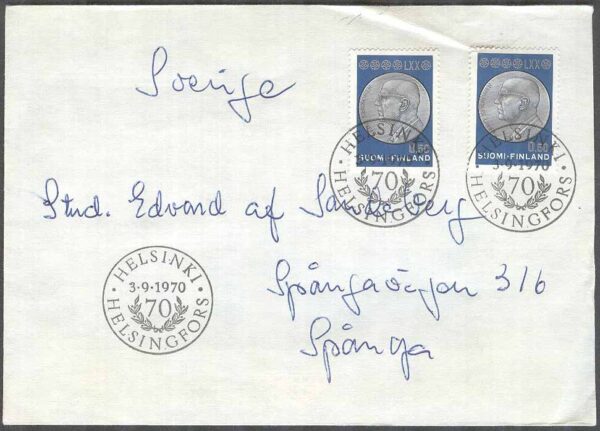 Sverige
LXX LXX
0.50 0.50
SUOMI-FINLAND SUOMI-FINLAND
HELSINKI
70
HELSINGFORS
HELSINKI
3-9-1970
70
HELSINGFORS
Stud. Edvard af Sandeberg
HELSINKI
3-9-1970
70
HELSINGFORS
Spångavägen 316
Spånga